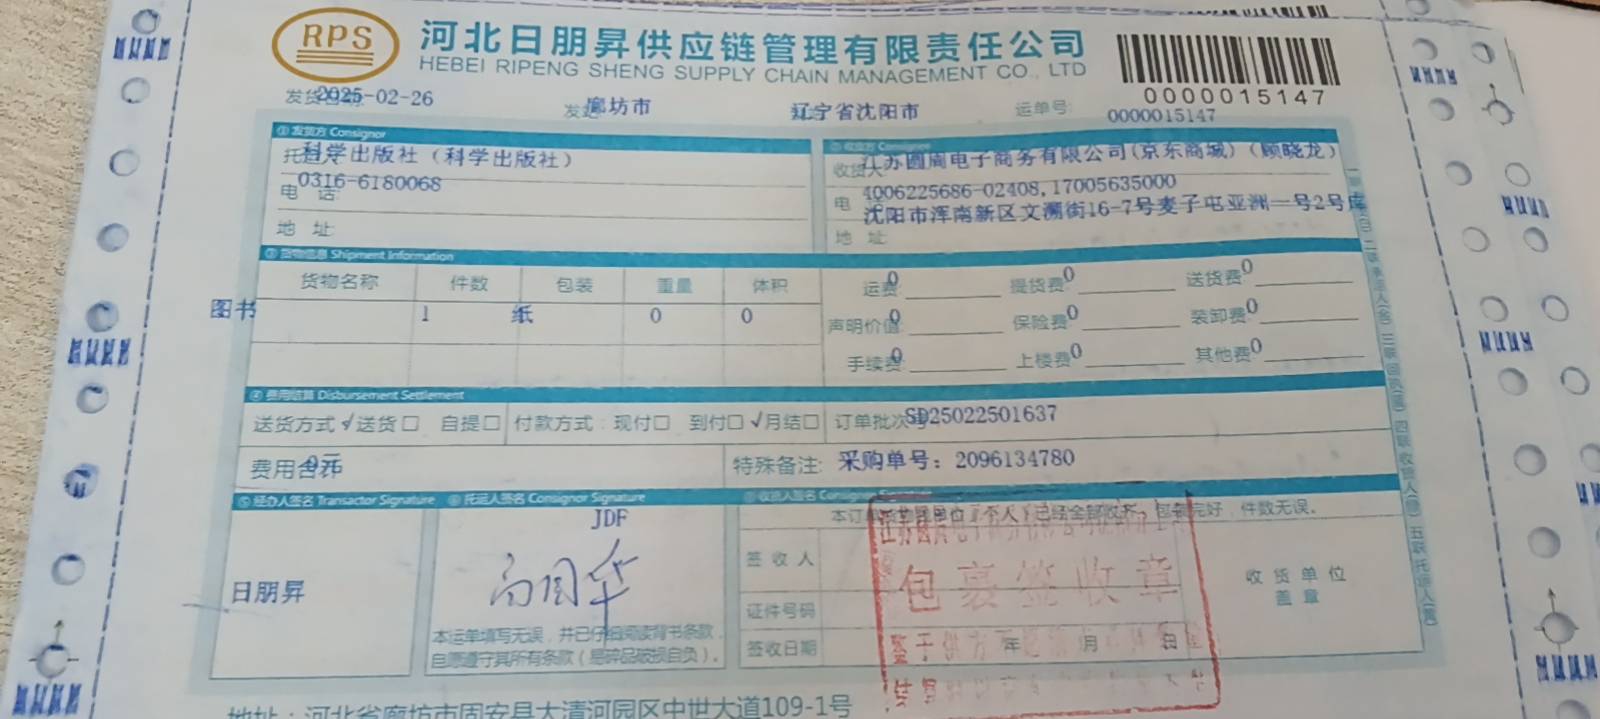 RPS
河北日朋昇供应链管理有限责任公司
HEBEI RIPENG SHENG SUPPLY CHAIN MANAGEMENT CO., LTD
0000015147
2025-02-26 廊坊市 辽宁省沈阳市 运单号: 0000015147
① 发货方 Consignor
科学出版社（科学出版社）
0316-6180068
电 话:
地 址:
江苏圆周电子商务有限公司(京东商城)（顾晓龙）
4006225686-02408,17005635000
电
沈阳市浑南新区文溯街16-7号麦子屯亚洲一号2号库
地 址:
③ 货物信息 Shipment Information
货物名称 件数 包装 重量 体积
图书 1 纸 0 0
运费 0 提货费 0 送货费 0
声明价值 0 保险费 0 装卸费 0
手续费 0 上楼费 0 其他费 0
④ 费用结算 Disbursement Settlement
送货方式 √送货□ 自提□ 付款方式：现付□ 到付□ √月结□ 订单批次号 SD25022501637
费用合计 0元 特殊备注: 采购单号：2096134780
⑤ 经办人签名 Transactor Signature ⑥ 托运人签名 Consignor Signature
日朋昇
JDF
高国华
本运单填写无误，并已仔细阅读背书条款，
自愿遵守其所有条款（易碎品破损自负）。
包装完好，件数无误。
签收人
证件号码
签收日期
年 月 日
包裹签收章
收货单位
盖章
地址：河北省廊坊市固安县大清河园区中世大道109-1号